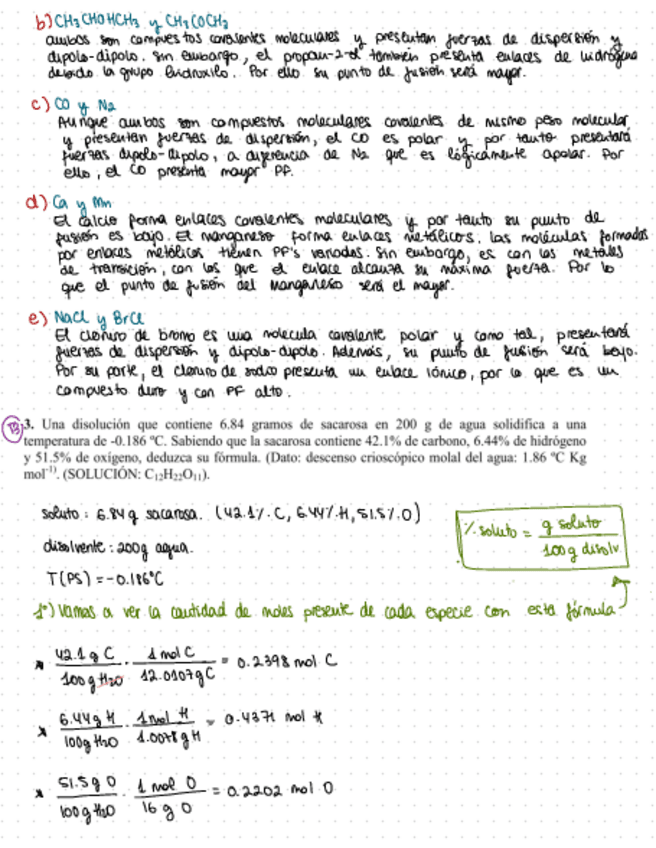 b) CH3CHOHCH3 y CH3COCH3
ambos son compuestos covalentes moleculares y presentan fuerzas de dispersión y
dipolo-dipolo. Sin embargo, el propan-2-ol también presenta enlaces de hidrógeno
debido la grupo hidroxilo. Por ello su punto de fusión será mayor.
c) CO y N2
Aunque ambos son compuestos moleculares covalentes de mismo peso molecular
y presentan fuerzas de dispersión, el CO es polar y por tanto presentará
fuerzas dipolo-dipolo, a diferencia de N2 que es lógicamente apolar. Por
ello, el CO presenta mayor PF.
d) Ca y Mn
El calcio forma enlaces covalentes moleculares y por tanto su punto de
fusión es bajo. El manganeso forma enlaces metálicos. Las moléculas formadas
por enlaces metálicos tienen PF's variados. Sin embargo, es con los metales
de transición, con los que el enlace alcanza su máxima fuerza. Por lo
que el punto de fusión del manganeso será el mayor.
e) NaCl y BrCl
El cloruro de bromo es una molécula covalente polar y como tal, presentará
fuerzas de dispersión y dipolo-dipolo. Además, su punto de fusión será bajo.
Por su parte, el cloruro de sodio presenta un enlace iónico, por lo que es un
compuesto duro y con PF alto.
3. Una disolución que contiene 6.84 gramos de sacarosa en 200 g de agua solidifica a una
temperatura de -0.186 ºC. Sabiendo que la sacarosa contiene 42.1% de carbono, 6.44% de hidrógeno
y 51.5% de oxígeno, deduzca su fórmula. (Dato: descenso crioscópico molal del agua: 1.86 ºC Kg
mol-1). (SOLUCIÓN: C12H22O11).
soluto: 6.84 g sacarosa. (42.1%.C, 6.44%.H, 51.5%.O)
disolvente: 200g agua.
T(PS) = -0.186ºC
% soluto = g soluto / 100 g disolv
1º) Vamos a ver la cantidad de moles presente de cada especie con esta fórmula
* 42.1 g C / 100 g H2O · 1 mol C / 12.0107 g C = 0.2398 mol C
* 6.44 g H / 100g H2O · 1 mol H / 1.0078 g H = 0.4371 mol H
* 51.5 g O / 100 g H2O · 1 mol O / 16 g O = 0.2202 mol O